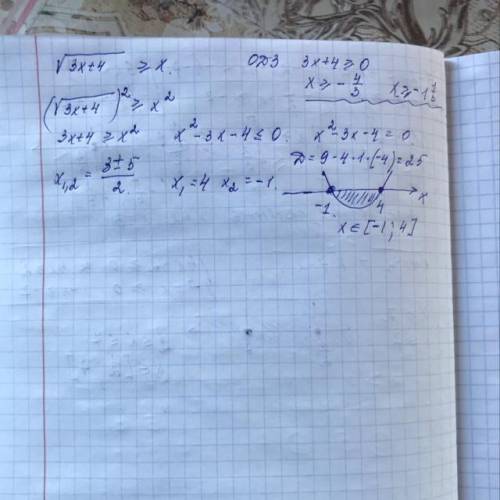 √3x+4 ≥ x. ОДЗ 3x+4 ≥ 0
x ≥ -4/3 x ≥ -1 1/3
(√3x+4)² ≥ x²
3x+4 ≥ x² x²-3x-4 ≤ 0. x²-3x-4 = 0.
D = 9-4·1·(-4) = 25
x1,2 = 3±5/2. x1 = 4 x2 = -1.
-1. 4 x
x ∈ [-1; 4]